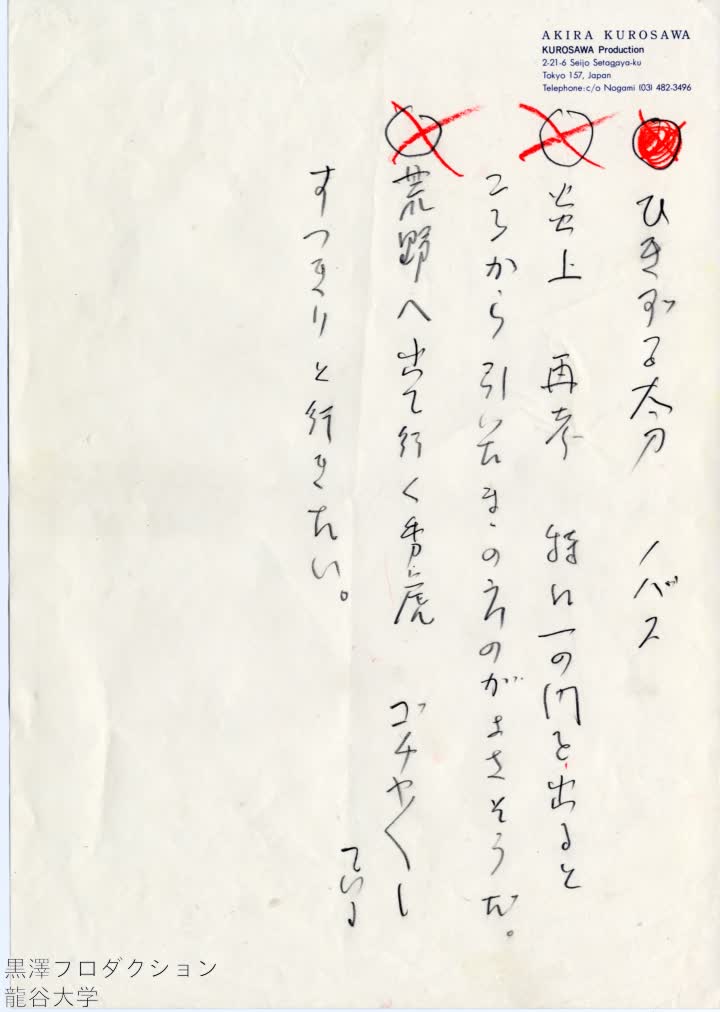 AKIRA KUROSAWA
KUROSAWA Production
2-21-6 Seijo Setagaya-ku
Tokyo 157, Japan
Telephone: c/o Nogami (03) 482-3496
ひきずる太刀 ノバス
炎上 再考 特に一の門を出ると
ころから引いたまゝの方のがよさそうだ。
荒野へ出て行く秀虎 ゴチャ〱し
ている
すつきりと行きたい。
黒澤プロダクション
龍谷大学